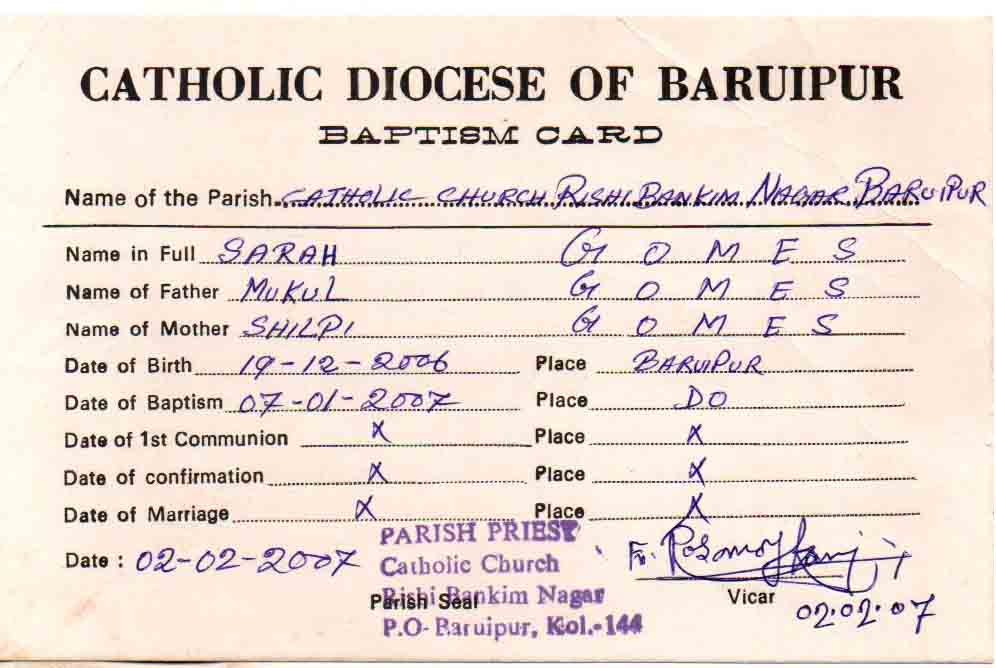 CATHOLIC DIOCESE OF BARUIPUR
BAPTISM CARD
Name of the Parish CATHOLIC CHURCH RISHI BANKIM NAGAR BARUIPUR
Name in Full SARAH GOMES
Name of Father MUKUL GOMES
Name of Mother SHILPI GOMES
Date of Birth 19-12-2006 Place BARUIPUR
Date of Baptism 07-01-2007 Place DO
Date of 1st Communion X Place X
Date of confirmation X Place X
Date of Marriage X Place X
PARISH PRIEST
Date : 02-02-2007 Catholic Church Fr.
Rishi Bankim Nagar
Parish Seal Vicar
02.02.07
P.O- Baruipur, Kol.-144